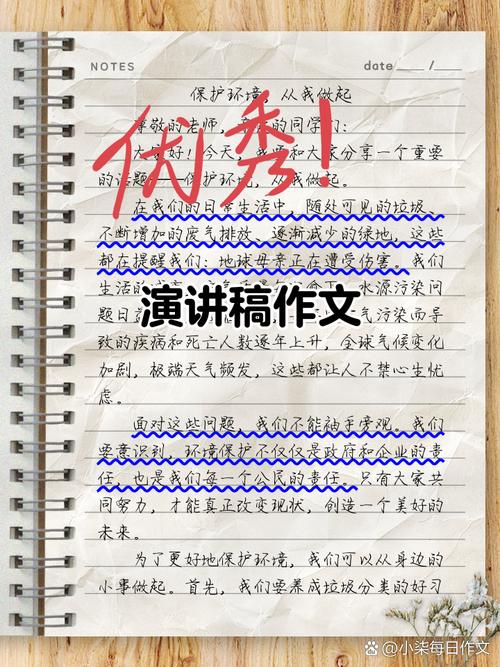 NOTES
date /
保护环境，从我做起
尊敬的老师，亲爱的同学们：
大家好！今天，我要和大家分享一个重要
的话题——保护环境，从我做起。
优秀！
在我们的日常生活中，随处可见的垃圾、
不断增加的废气排放、逐渐减少的绿地，这些
都在提醒我们：地球母亲正在遭受伤害。我们
生活的
水源污染问
演讲稿作文
题日
气污染而导
致的疾病和死亡人数逐年上升，全球气候变化
加剧，极端天气频发，这些都让人不禁心生忧
虑。
面对这些问题，我们不能袖手旁观。我们
要意识到，环境保护不仅仅是政府和企业的责
任，也是我们每一个公民的责任。只有大家共
同努力，才能真正改变现状，创造一个美好的
未来。
为了更好地保护环境，我们可以从身边的
小事做起。首先，我们要养成垃圾分类的好习
小柒每日作文